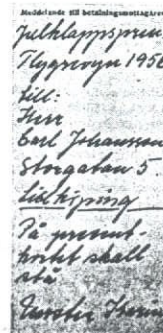 Meddelande till betalningsmottagaren
Julklappspren.
Flygrevyn 1956
till:
Herr
Carl Johansson
Storgatan 5.
Lidköping
På present-
kortet skall
stå